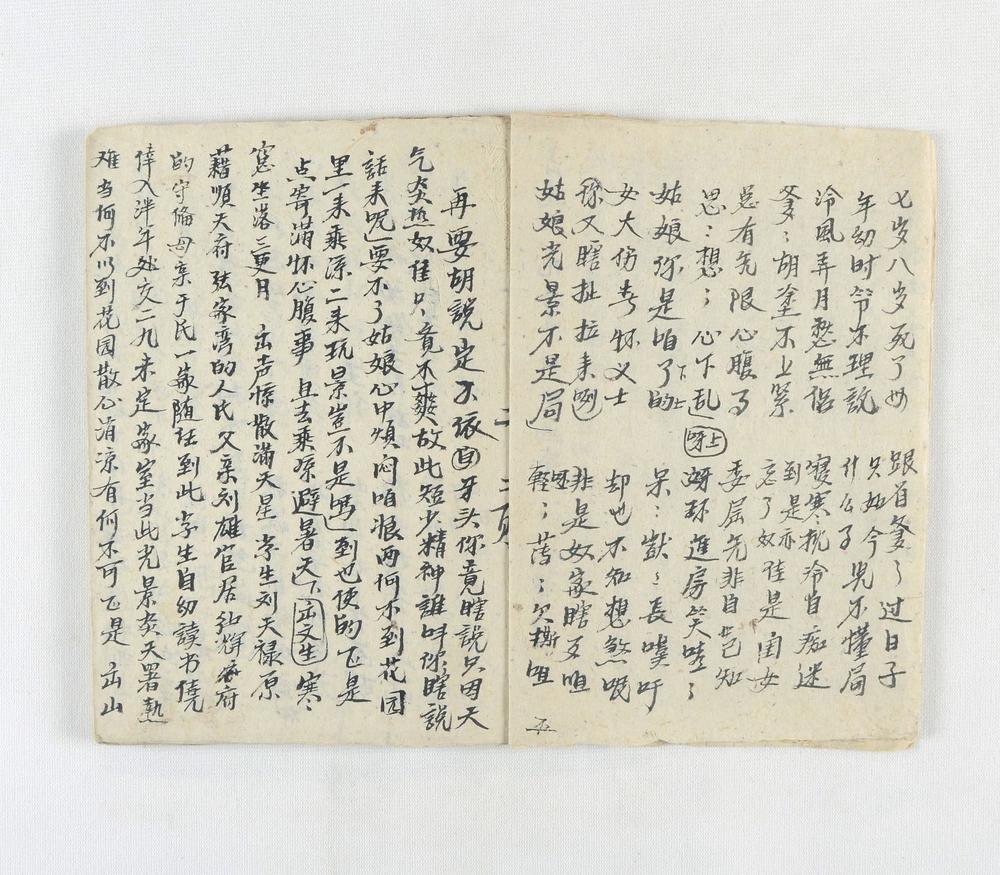 七岁八岁死了母
跟首爹〻过日子
年幼时节不理説
只如今
什么子児不懂局
冷風弄月愁無侣
寝寒枕冷自痴迷
到是亦
爹〻胡塗不上紧
忘了奴佳是闺女
总有无限心腹事
委屈先非自己知
思〻想〻心下乱
呀上
姑娘你是咱了的
下
呆〻獃〻長嘆吁
女大伤春怀义士
却也不知想煞哏
你又瞎扯拉来咧
非是奴家瞎歹咀
姑娘光景不是局
輕〻薄〻欠撕咀
再要胡説定不依 白 牙头你竟瞎説只因天
气炎热奴佳只竟不爽故此短少精神誰叫你瞎説
話来呢 要不了姑娘心中煩闷咱狠两何不到花园
里一来乘凉二来玩景豈不是 到也使的正是
点寄满怀心腹事 且去乘凉避暑天 下 出文生 寒
窓坐落三更月 出声惊散满天星 学生刘天禄原
藉順天府张家湾的人氏父亲刘雄官居
的守偹母亲于氏一家随任到此学生自幼讀书侥
倖入泮年处交二九未定家室当此光景炎天署热
难当何不以到花园散心消凉有何不可正是 出山
二
頁